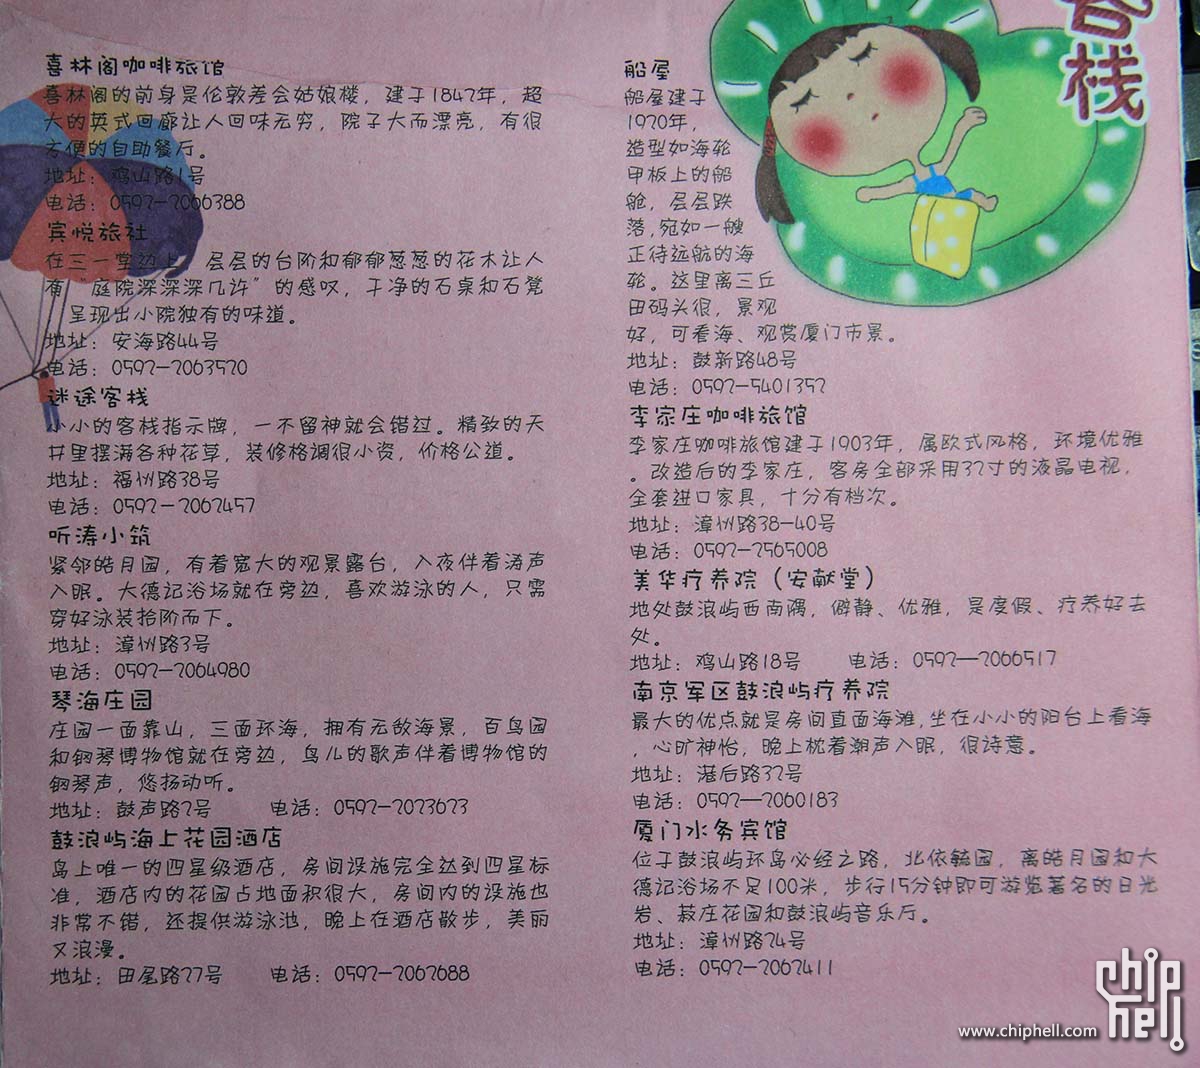 客栈
喜林阁咖啡旅馆
喜林阁的前身是伦敦差会姑娘楼，建于1842年，超
大的英式回廊让人回味无穷，院子大而漂亮，有很
方便的自助餐厅。
地址：鸡山路1号
电话：0592-2066388
宾悦旅社
在三一堂边上，层层的台阶和郁郁葱葱的花木让人
有“庭院深深深几许”的感叹，干净的石桌和石凳
呈现出小院独有的味道。
地址：安海路44号
电话：0592-2063520
迷途客栈
小小的客栈指示牌，一不留神就会错过。精致的天
井里摆满各种花草，装修格调很小资，价格公道。
地址：福州路38号
电话：0592-2062457
听涛小筑
紧邻皓月园，有着宽大的观景露台，入夜伴着涛声
入眠。大德记浴场就在旁边，喜欢游泳的人，只需
穿好泳装拾阶而下。
地址：漳州路3号
电话：0592-2064980
琴海庄园
庄园一面靠山，三面环海，拥有无敌海景，百鸟园
和钢琴博物馆就在旁边，鸟儿的歌声伴着博物馆的
钢琴声，悠扬动听。
地址：鼓声路2号 电话：0592-2023623
鼓浪屿海上花园酒店
岛上唯一的四星级酒店，房间设施完全达到四星标
准，酒店内的花园占地面积很大，房间内的设施也
非常不错，还提供游泳池，晚上在酒店散步，美丽
又浪漫。
地址：田尾路27号 电话：0592-2062688
船屋
船屋建于
1920年，
造型如海轮
甲板上的船
舱，层层跌
落，宛如一艘
正待远航的海
轮。这里离三丘
田码头很，景观
好，可看海、观赏厦门市景。
地址：鼓新路48号
电话：0592-5401352
李家庄咖啡旅馆
李家庄咖啡旅馆建于1903年，属欧式风格，环境优雅
。改造后的李家庄，客房全部采用32寸的液晶电视，
全套进口家具，十分有档次。
地址：漳州路38-40号
电话：0592-2565008
美华疗养院（安献堂）
地处鼓浪屿西南隅，僻静、优雅，是度假、疗养好去
处。
地址：鸡山路18号 电话：0592—2066517
南京军区鼓浪屿疗养院
最大的优点就是房间直面海滩，坐在小小的阳台上看海
，心旷神怡，晚上枕着潮声入眠，很诗意。
地址：港后路32号
电话：0592—2060183
厦门水务宾馆
位于鼓浪屿环岛必经之路，北依毓园，离皓月园和大
德记浴场不足100米，步行15分钟即可游览著名的日光
岩、菽庄花园和鼓浪屿音乐厅。
地址：漳州路24号
电话：0592-2062411
chip
hell
www.chiphell.com